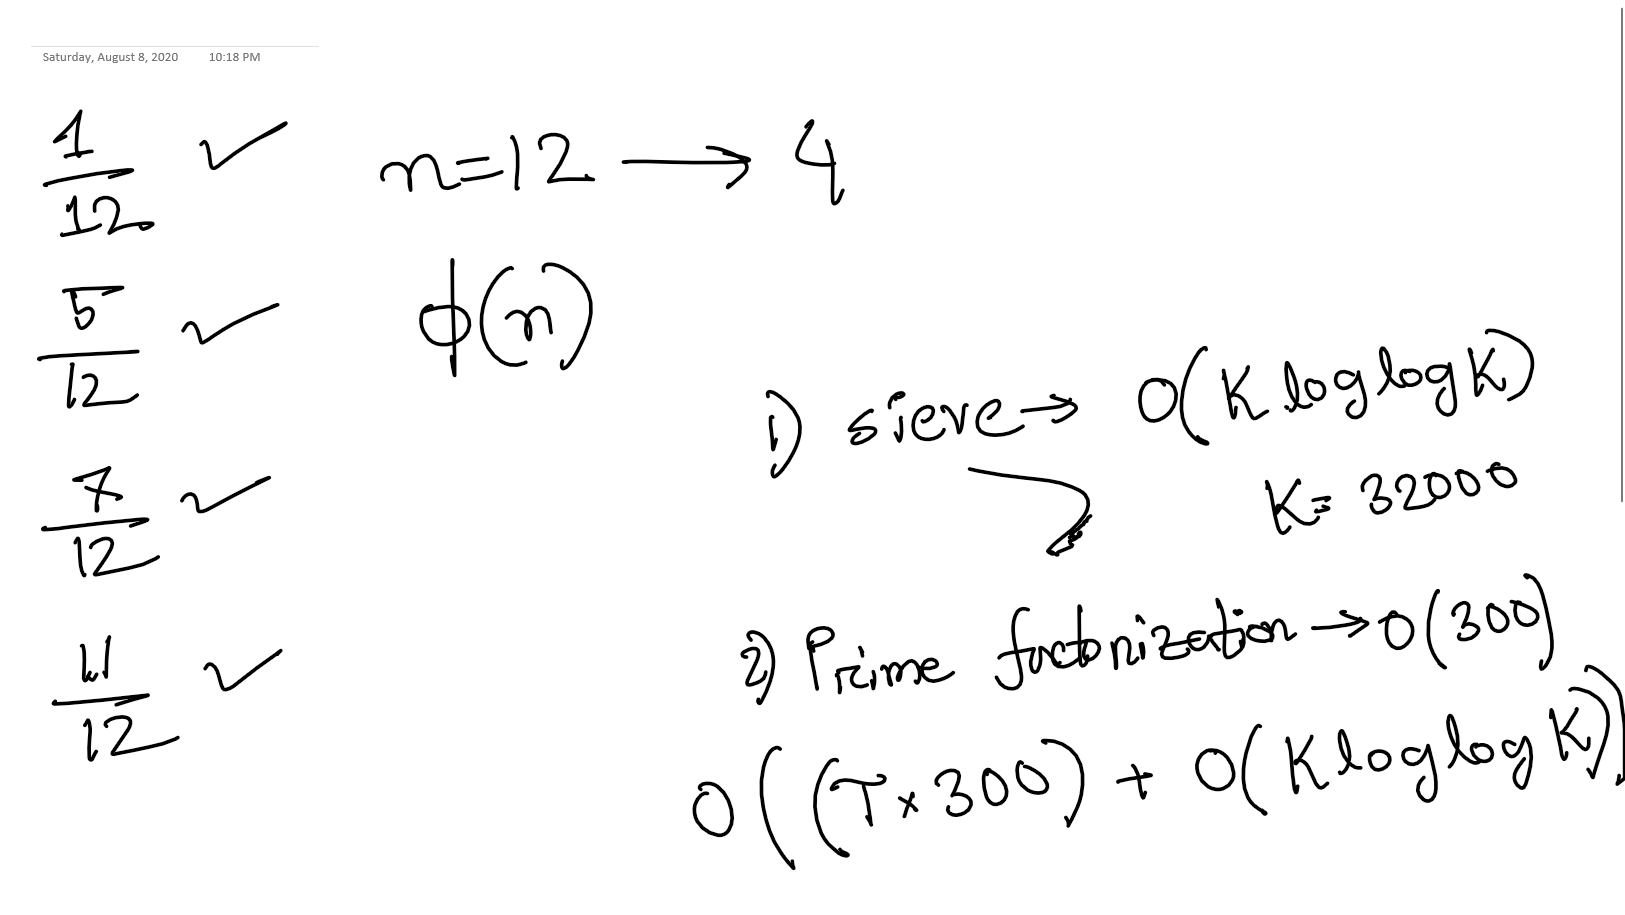 Saturday, August 8, 2020 10:18 PM
1/12 ✓
n=12 → 4
5/12 ✓
ϕ(n)
7/12 ✓
11/12 ✓
1) sieve → O(K log log K)
K = 32000
2) Prime factorization → O(300)
O((T × 300) + O(K log log K))